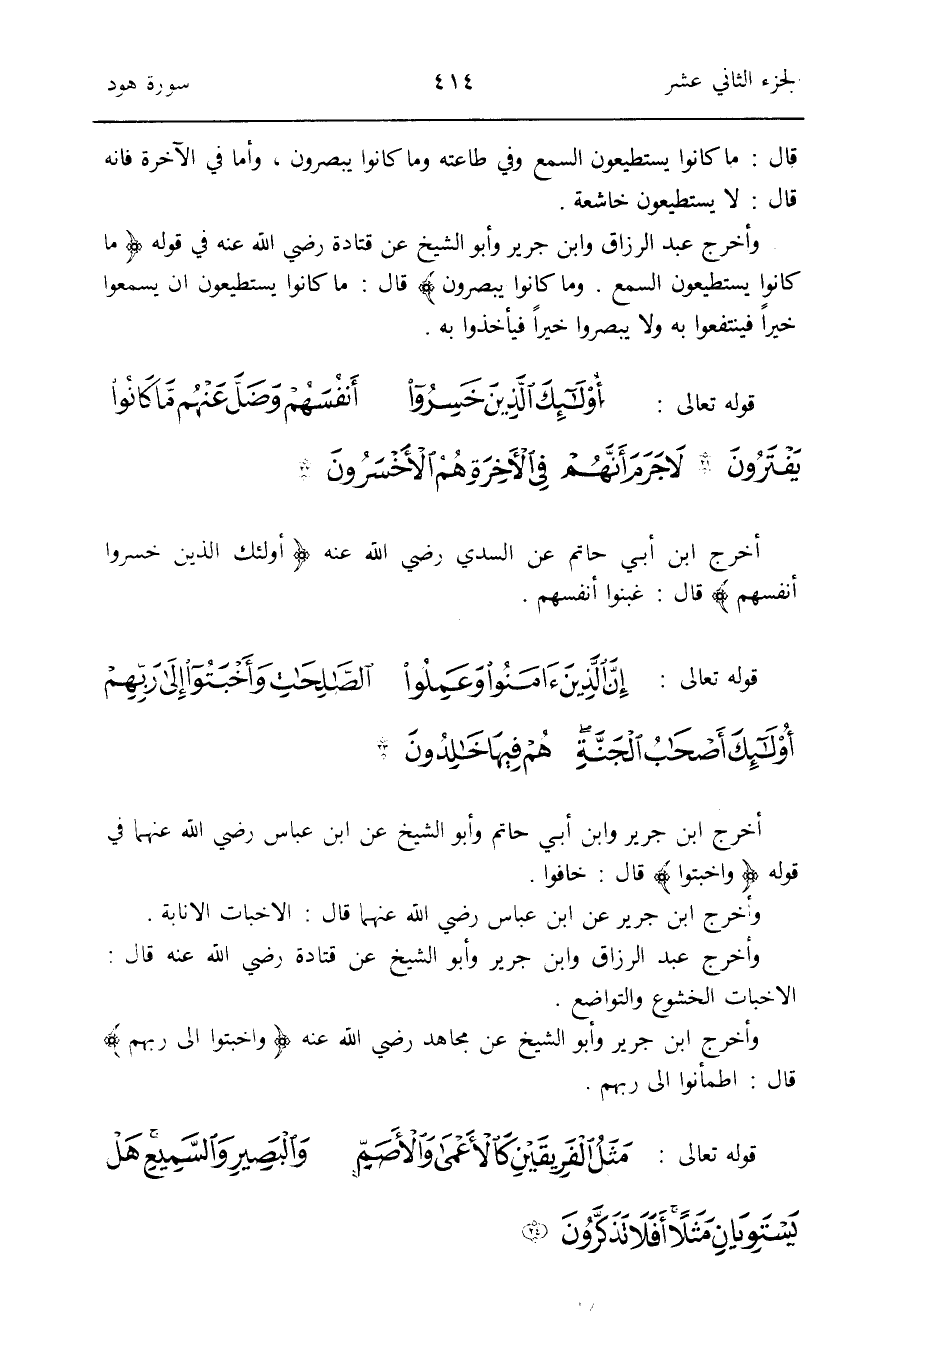 الجزء الثاني عشر ٤١٤ سورة هود
قال : ما كانوا يستطيعون السمع وفي طاعته وما كانوا يبصرون ، وأما في الآخرة فانه
قال : لا يستطيعون خاشعة .
وأخرج عبد الرزاق وابن جرير وأبو الشيخ عن قتادة رضي الله عنه في قوله ﴿ ما
كانوا يستطيعون السمع . وما كانوا يبصرون ﴾ قال : ما كانوا يستطيعون ان يسمعوا
خيراً فينتفعوا به ولا يبصروا خيراً فيأخذوا به .
قوله تعالى : أُوْلَٰٓئِكَ ٱلَّذِينَ خَسِرُوٓاْ أَنفُسَهُمْ وَضَلَّ عَنْهُم مَّا كَانُواْ
يَفْتَرُونَ ۝٢١ لَا جَرَمَ أَنَّهُمْ فِى ٱلْأَخِرَةِ هُمُ ٱلْأَخْسَرُونَ ۝٢٢
أخرج ابن أبي حاتم عن السدي رضي الله عنه ﴿ أولئك الذين خسروا
أنفسهم ﴾ قال : غبنوا أنفسهم .
قوله تعالى : إِنَّ ٱلَّذِينَ ءَامَنُواْ وَعَمِلُواْ ٱلصَّٰلِحَٰتِ وَأَخْبَتُوٓاْ إِلَىٰ رَبِّهِمْ
أُوْلَٰٓئِكَ أَصْحَٰبُ ٱلْجَنَّةِۖ هُمْ فِيهَا خَٰلِدُونَ ۝٢٣
أخرج ابن جرير وابن أبي حاتم وأبو الشيخ عن ابن عباس رضي الله عنهما في
قوله ﴿ واخبتوا ﴾ قال : خافوا .
وأخرج ابن جرير عن ابن عباس رضي الله عنهما قال : الاخبات الانابة .
وأخرج عبد الرزاق وابن جرير وأبو الشيخ عن قتادة رضي الله عنه قال :
الاخبات الخشوع والتواضع .
وأخرج ابن جرير وأبو الشيخ عن مجاهد رضي الله عنه ﴿ واخبتوا الى ربهم ﴾
قال : اطمأنوا الى ربهم .
قوله تعالى : مَثَلُ ٱلْفَرِيقَيْنِ كَٱلْأَعْمَىٰ وَٱلْأَصَمِّ وَٱلْبَصِيرِ وَٱلسَّمِيعِۚ هَلْ
يَسْتَوِيَانِ مَثَلًاۚ أَفَلَا تَذَكَّرُونَ ۝٢٤